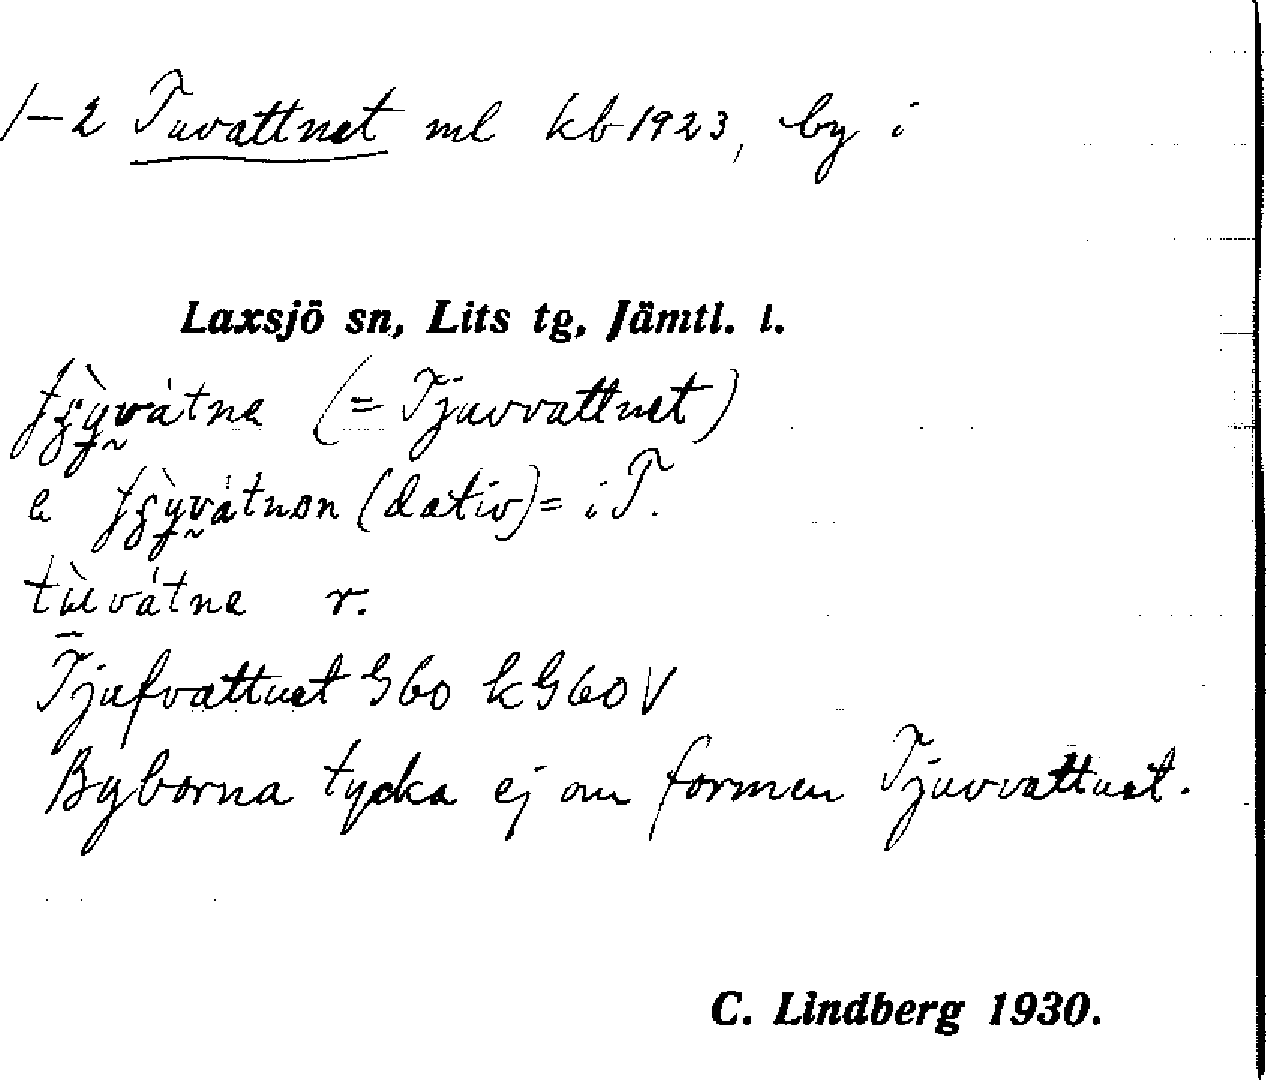 1-2 Tuvattnet ml kb 1923, by i
Laxsjö sn, Lits tg, Jämtl. l.
(= Tjuvvattnet)
(dativ) = i T.
tùvátne r.
Tjufvattnet G60 kG60V
Byborna tycka ej om formen Tjuvvattnet.
C. Lindberg 1930.